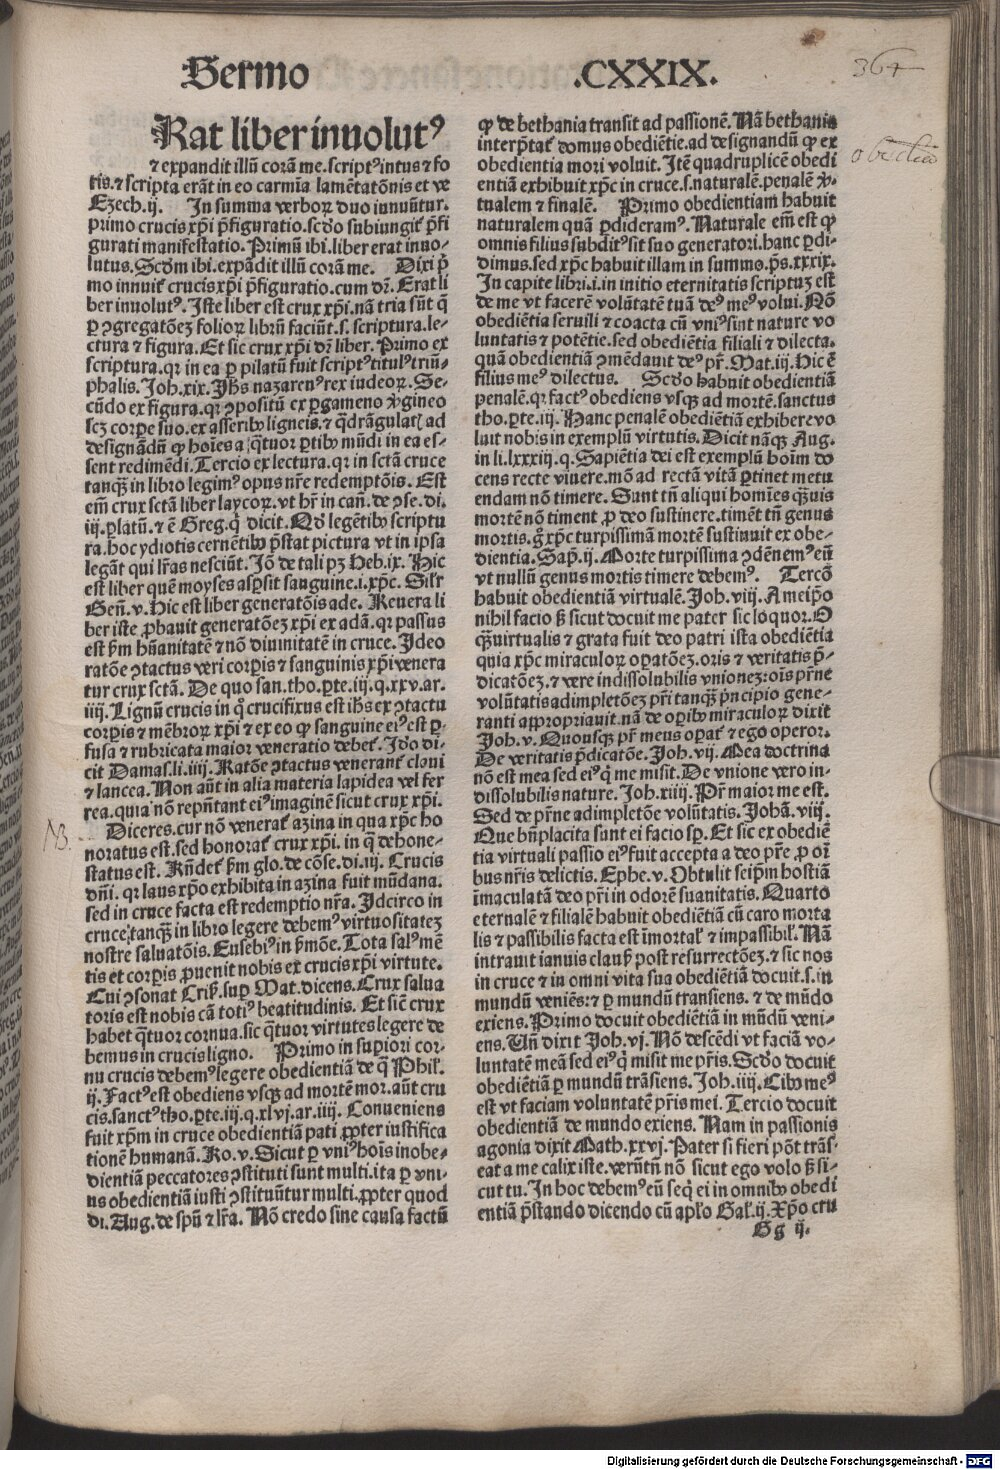 Sermo .CXXIX.
364
Rat liber inuolutꝰ
⁊ expandit illū corā me.scriptꝰ intus ⁊ fo
ris.⁊ scripta erāt in eo carmīa lamētatōnis et ve
Ezech.ij. In summa verboꝝ duo innuūtur.
primo crucis xp̄i p̄figuratio.scd̄o subiungit̄ p̄fi
gurati manifestatio. Primū ibi.liber erat inuo-
lutus. Scd̄m ibi.expādit illū corā me. Dixi p̄
mo innuit̄ crucis xp̄i p̄figuratio.cum dr̄. Erat li
ber inuolutꝰ. Iste liber est crux xp̄i.nā tria sūt q̄
ꝑ ꝯgregatōeꝫ folioꝝ librū faciūt.s. scriptura.le-
ctura ⁊ figura. Et sic crux xp̄i dr̄ liber. Primo ex
scriptura.qꝛ in ea ꝑ pilatū fuit scriptꝰ titulꝰ triū-
phalis. Joh.xix. Jhs̄ nazarenꝰ rex iudeoꝝ. Se-
cūdo ex figura.qꝛ ꝯpositū ex ꝑgameno v̓gineo
scꝫ corpe suo.ex asseribꝰ ligneis.⁊ q̄drāgulat̄ ad
designādū ꝙ hoīes a q̄tuor ꝑtibꝰ mūdi in ea es-
sent redimēdi. Tercio ex lectura.qꝛ in sctā cruce
tanqꝫ in libro legimꝰ opus nr̄e redemptōis. Est
em̄ crux sctā liber laycoꝝ.vt hr̄ in cañ. de ꝯse.di.
iij.ꝑlatū.⁊ ē Greg.q̓ dicit. Qd̓ legētibꝰ scriptu
ra.hoc ydiotis cernētibꝰ p̄stat pictura vt in ipsa
legāt qui lr̄as nesciūt. Jō de tali pꝫ Heb.ix. Hic
est liber quē moyses aspsit sanguine.i.xp̄c. Silr̄
Geñ.v. Hic est liber generatōis ade. Reuera li
ber iste ꝓbauit generatōeꝫ xp̄i ex adā.qꝛ passus
est ẜm hūanitatē ⁊ nō diuinitatē in cruce. Ideo
ratōe ꝯtactus veri corpis ⁊ sanguinis xp̄i venera
tur crux sctā. De quo san.tho.ꝑte.iij.q.xxv.ar.
iiij. Lignū crucis in q̓ crucifixus est ihs̄ ex ꝯtactu
corpis ⁊ mēbroꝝ xp̄i ⁊ ex eo ꝙ sanguine eiꝰ est ꝑ-
fusa ⁊ rubricata maior veneratio debet̄. Jd̓o di-
cit Damas.li.iiij. Ratōe ꝯtactus venerant̄ claui
⁊ lancea. Non aūt in alia materia lapidea vel fer
rea.quia nō repn̄tant eiꝰ imaginē sicut crux xp̄i.
NB.
Diceres.cur nō venerat̄ azina in qua xp̄c ho
noratus est.sed honorat̄ crux xp̄i.in q̓ dehone-
status est. Rn̄det̄ ẜm glo.de cōse.di.iij. Crucis
dn̄i.qꝛ laus xp̄o exhibita in azina fuit mūdana.
sed in cruce facta est redemptio nr̄a. Idcirco in
cruce tanqꝫ in libro legere debemꝰ virtuositateꝫ
nostre saluatōis. Eusebiꝰ in ẜmōe. Tota salꝰ mē
tis et corpis ꝓuenit nobis ex crucis xp̄i virtute.
Cui ꝯsonat Criẜ.suꝑ Mat.dicens. Crux salua
toris est nobis cā totiꝰ beatitudinis. Et sic̄ crux
habet q̄tuor cornua.sic q̄tuor virtutes legere de
bemus in crucis ligno. Primo in supiori cor-
nu crucis debemꝰ legere obedientiā de q̓ Phil̄.
ij. Factꝰ est obediens vsqꝫ ad mortē mor.aūt cru
cis.sanctꝰ tho.ꝑte.iij.q.xlvj.ar.iiij. Conueniens
fuit xp̄m in cruce obedientiā pati ꝓpter iustifica
tionē humanā. Ro.v. Sicut ꝑ vniꝰ hoīs inobe-
dientiā peccatores ꝯstituti sunt multi.ita ꝑ vni-
us obedientiā iusti ꝯstituūtur multi.ꝓpter quod
di. Aug.de spū ⁊ lr̄a. Nō credo sine causa factū
ꝙ de bethania transit ad passionē. Nā bethania
interptat̄ domus obediētie.ad designandū ꝙ ex
obedientia mori voluit. Itē quadruplicē obedi
entiā exhibuit xp̄c in cruce.s.naturalē.penalē v̓-
tualem ⁊ finalē. Primo obedientiam habuit
naturalem quā ꝑdideramꝰ. Naturale em̄ est ꝙ
omnis filius subditꝰ sit suo generatori.hanc ꝑdi-
dimus.sed xp̄c habuit illam in summo.ps̄.xxxix.
In capite libri.i.in initio eternitatis scriptuꝫ est
de me vt facerē volūtatē tuā deꝰ meꝰ volui. Nō
obediētia seruili ⁊ coacta cū vniꝰ sint nature vo
luntatis ⁊ potētie.sed obediētia filiali ⁊ dilecta.
quā obedientiā ꝯmēdauit deꝰ pr̄. Mat.iij. Hic ē
filius meꝰ dilectus. Scd̄o habuit obedientiā
penalē.qꝛ factꝰ obediens vsqꝫ ad mortē.sanctus
tho.ꝑte.iij. Hanc penalē obediētiā exhibere vo
luit nobis in exemplū virtutis. Dicit nāqꝫ Aug.
in li.lxxxiij.q. Sapiētia dei est exemplū hoīm do
cens recte viuere.mō ad rectā vitā ꝑtinet metu
endam nō timere. Sunt tn̄ aliqui homīes qꝫuis
mortē nō timent ꝓ deo sustinere.timēt tn̄ genus
mortis.g̊ xp̄c turpissimā mortē sustinuit ex obe-
dientia. Sap̄.ij. Morte turpissima ꝯdēnemꝰ eū
vt nullū genus mortis timere debemꝰ. Tercō
habuit obedientiā virtualē. Joh.viij. A meip̄o
nihil facio ẜ sicut docuit me pater sic loquor. O
qꝫ virtualis ⁊ grata fuit deo patri ista obediētia
quia xp̄c miraculoꝝ opatōeꝫ.oris ⁊ veritatis p̄-
dicatōeꝫ.⁊ vere indissolubilis vnioneꝫ:ois pr̄ne
volūtatis adimpletōeꝫ pr̄i tanqꝫ p̓ncipio gene-
ranti appropriauit.nā de opibꝰ miraculoꝝ dixit
Joh.v. Quousqꝫ pr̄ meus opat̄ ⁊ ego operor.
De veritatis p̄dicatōe. Joh.vij. Mea doctrina
nō est mea sed eiꝰ q̓ me misit. De vnione vero in-
dissolubilis nature. Joh.xiiij. Pr̄ maior me est.
Sed de pr̄ne adimpletōe volūtatis. Johā.viij.
Que bn̄placita sunt ei facio sꝑ. Et sic ex obediē
tia virtuali passio eiꝰ fuit accepta a deo pr̄e ꝓ oī
bus nr̄is delictis. Ephe.v. Obtulit seip̄m hostiā
īmaculatā deo pr̄i in odorē suauitatis. Quarto
eternalē ⁊ filialē habuit obediētiā cū caro morta
lis ⁊ passibilis facta est īmortal̄ ⁊ impassibil̄. Nā
intrauit ianuis clausꝭ post resurrectōeꝫ.⁊ sic nos
in cruce ⁊ in omni vita sua obediētiā docuit.s.in
mundū veniēs:⁊ ꝑ mundū transiens.⁊ de mūdo
exiens. Primo docuit obediētiā in mūdū veni-
ens. Vn̄ dixit Joh.vj. Nō descēdi vt faciā vo-
luntatē meā sed eiꝰ q̓ misit me pr̄is. Scd̄o docuit
obediētiā ꝑ mundū trāsiens. Joh.iiij. Cibꝰ meꝰ
est vt faciam voluntatē pr̄is mei. Tercio docuit
obedientiā de mundo exiens. Nam in passionis
agonia dixit Math.xxvj. Pater si fieri pōt trās-
eat a me calix iste.verūtn̄ nō sicut ego volo ẜ si-
cut tu. In hoc debemꝰ eū seq̓ ei in omnibꝰ obedi
entiā p̄stando dicendo cū aplo Gal̄.ij. Xp̄o cru
Gg ij.
Digitalisierung gefördert durch die Deutsche Forschungsgemeinschaft - DFG